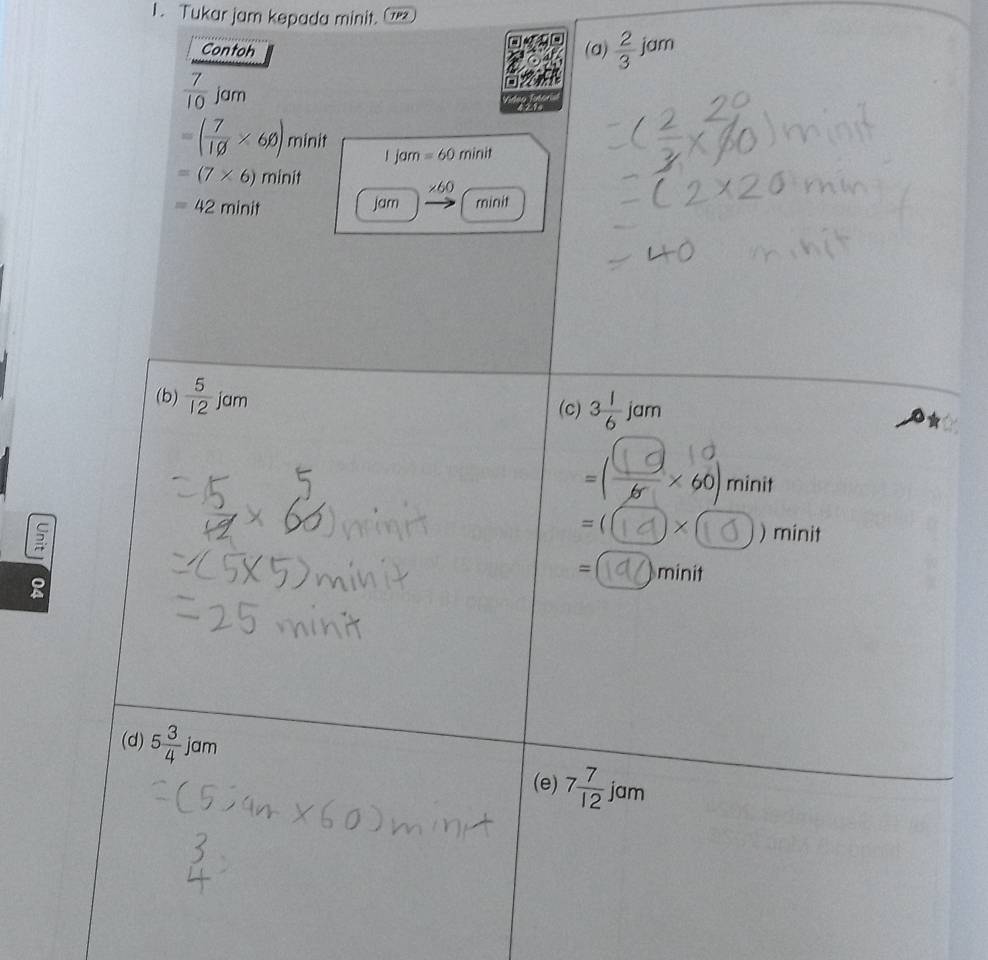 1. Tukar jam kepada minit. TP2
Contoh
7/10 jam
= (7/10 × 60) minit
= (7 × 6) minit
= 42 minit
Video Tutorial
4.2.1a
1 jam = 60 minit
jam ×60 → minit
(a) 2/3 jam
= (2/3 × 60) minit 20
= (2 × 20 min
= 40 minit
(b) 5/12 jam
= 5/12 × 60) minit 5
= (5 × 5) minit
= 25 minit
(c) 3 1/6 jam
= (19/6 × 60) minit 10
= (19 × 10) minit
= 190 minit
(d) 5 3/4 jam
= (5 jam × 60) minit
3/4
(e) 7 7/12 jam
Unit
04